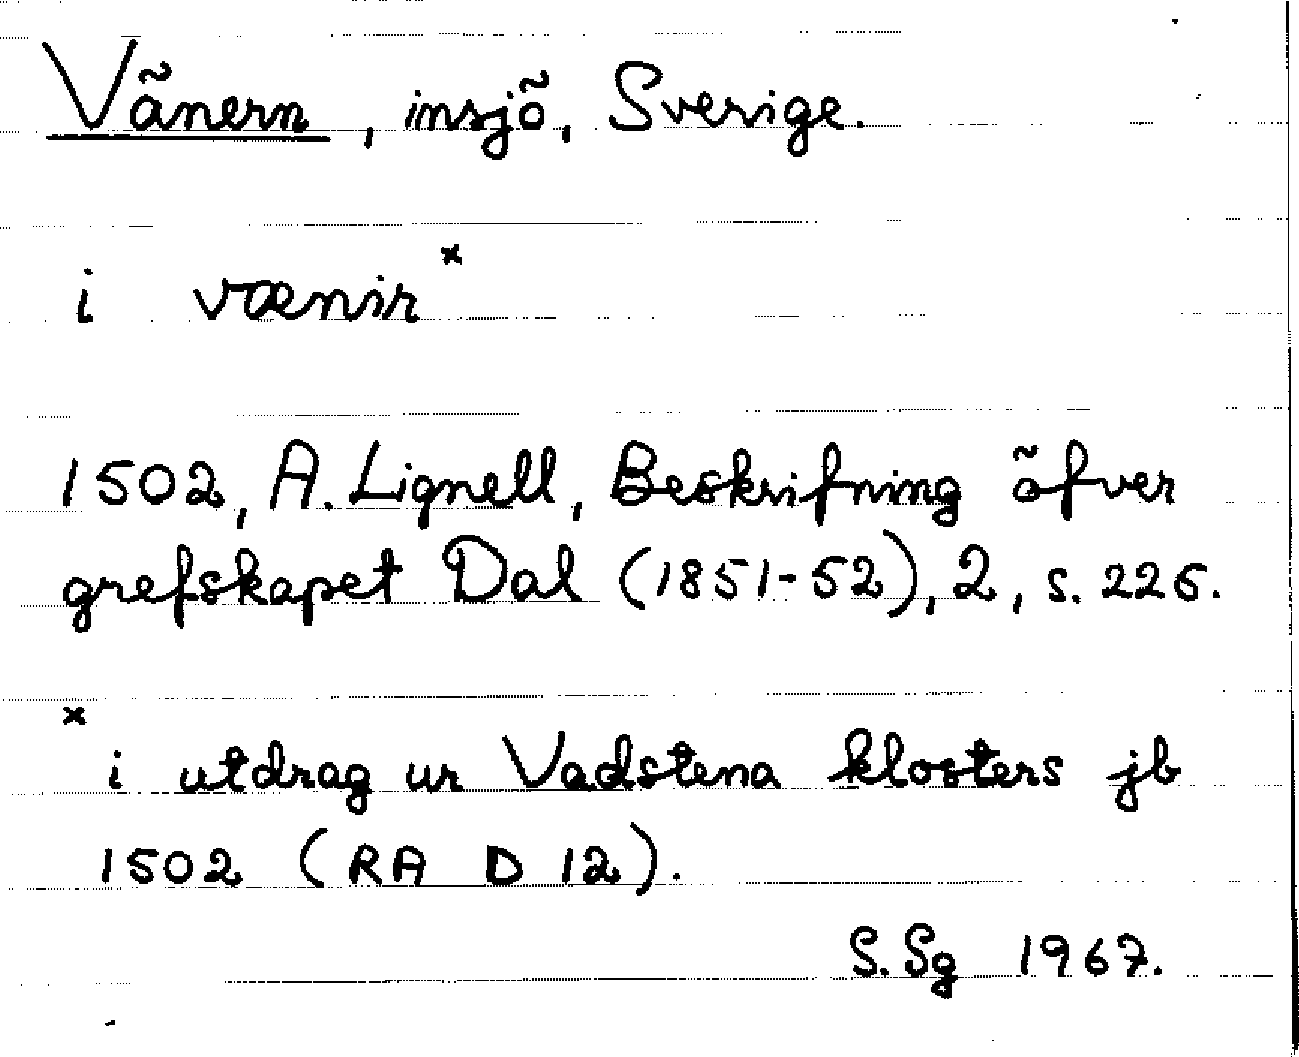 Vänern, insjö, Sverige.
i vænir×
1502, A. Lignell, Beskrifning öfver
grefskapet Dal (1851-52), 2, s. 226.
× i utdrag ur Vadstena klosters jb
1502 (RA D 12).
S. Sg 1967.